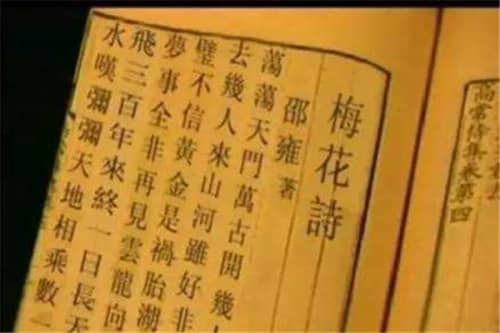 高常侍集卷第四
梅花詩
邵雍著
蕩蕩天門萬古開幾
去幾人來山河雖好非
璧不信黃金是禍胎湖
夢事全非再見雲龍向
飛三百年來終一日長天
水嘆彌彌天地相乘數一